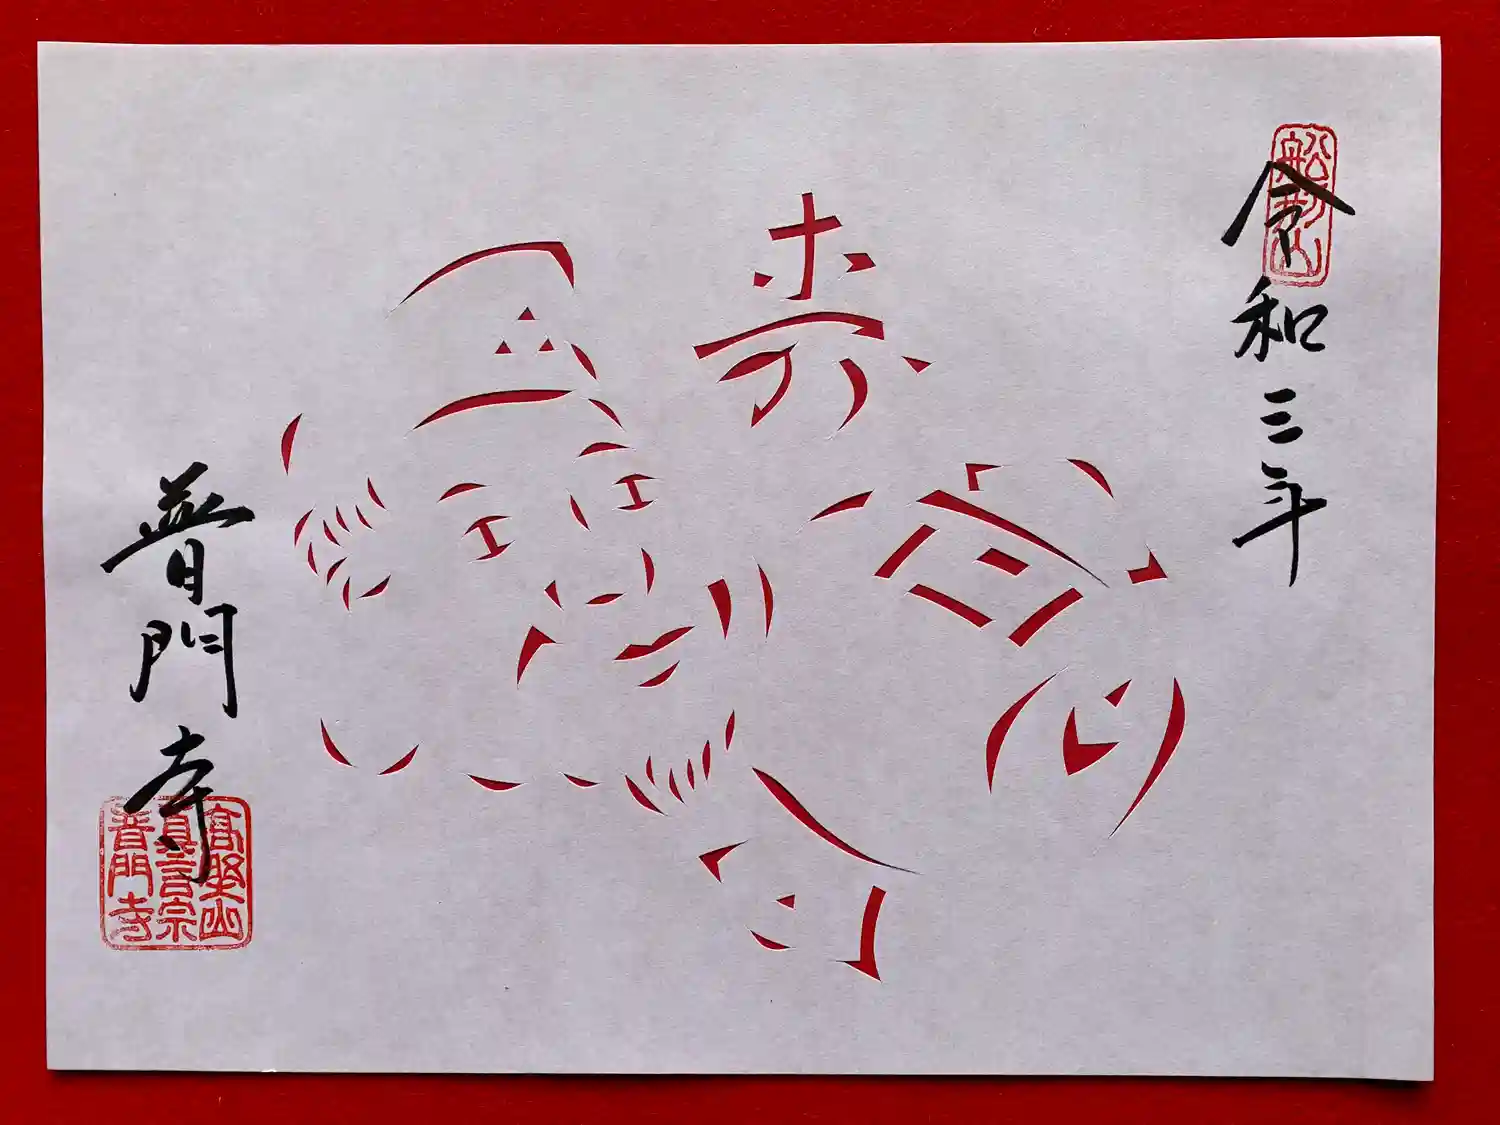 舩形山
令和三年
普門寺
高野山
真言宗
普門寺